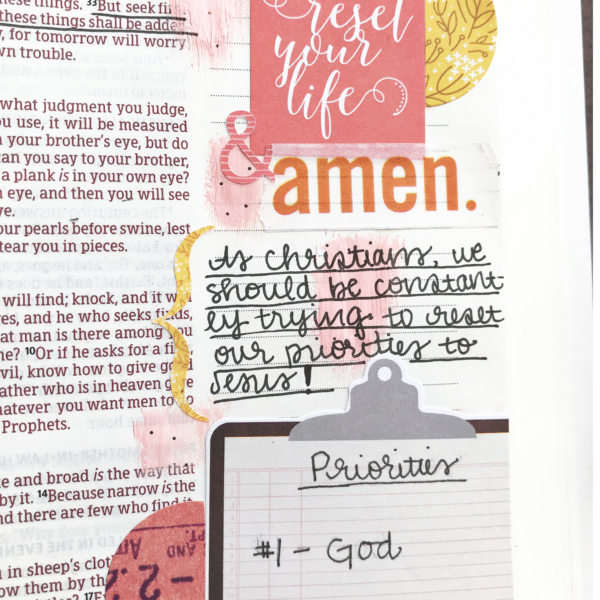 these things. 33But seek
these things shall be adde
, for tomorrow will worry
own trouble.
what judgment you judge,
you use, it will be measured
n your brother's eye, but do
can you say to your brother,
a plank is in your own eye?
n eye, and then you will see
eye.
our pearls before swine, lest
tear you in pieces.
will find; knock, and it
ves, and he who seeks finds,
at man is there among you
ne? 10Or if he asks for a
evil, know how to give good
ather who is in heaven give
hatever you want men to do
Prophets.
te and broad is the way that
by it. 14Because narrow is the
nd there are few who find it.
in sheep's
ow them by
17
reset
your
life
&
amen.
As Christians, we
should be constant
ly trying to reset
our priorities to
Jesus!
Priorities
#1 - God
AND
PT.
- 2.2